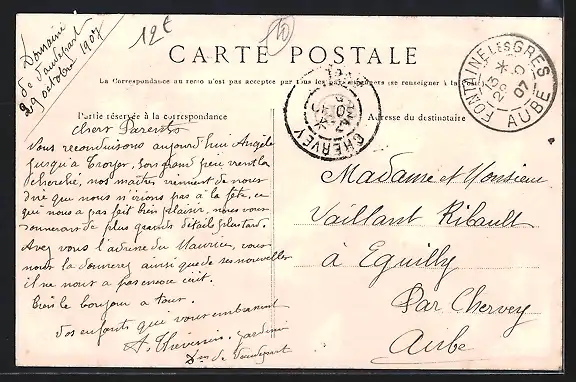 Domaine
de Vaudepart
29 octobre 1907
12 €
CARTE POSTALE
La Correspondance au verso n'est pas acceptée par tous les pays étrangers (se renseigner à la Poste)
FONTAINE LES GRES
AUBE
CHERVEY
Partie réservée à la correspondance
Adresse du destinataire
chers Parents
Vous reconduisons aujourd'hui Angèle
jusqu'à Troyes, son grand père vient la
chercher, nos maîtres viennent de nous
dire que nous n'irions pas à la fête, ce
qui nous a pas fait bien plaisir, nous vous
donnerons de plus grands détails plus tard.
Avez vous l'adresse du Maurice, vous
nous la donnerez ainsi que de ses nouvelles
il ne nous a pas encore écrit.
Bien le bonjour à tous.
Vos enfants qui vous embrassent
A. Thévenin, jardinier
Dne de Vaudepart
Madame et Monsieur
Vaillant Ribault
à Eguilly
Par Chervey
Aube